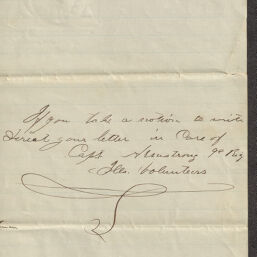 If you take a notion to write
Direct your letter in Care of
Capt Armstrong 9th Reg
Ills. Volunteers